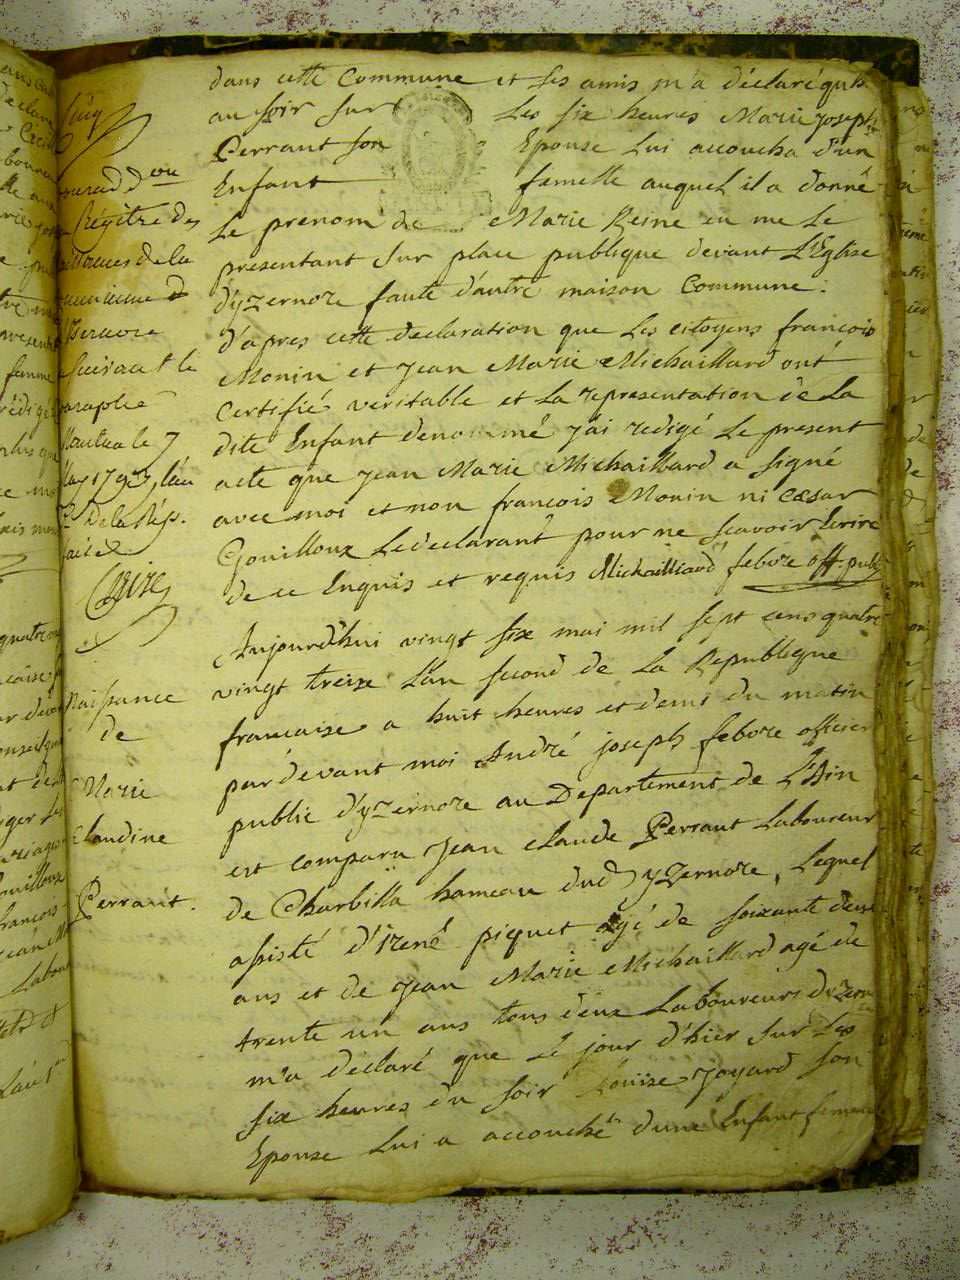 dans cette Commune et ses amis m'a déclaré qu'h
au soir sur les six heures Marie joseph
Perrant son Epouse Lui accoucha d'un
Enfant famelle auquel il a donné
Le prenom de Marie Reine en me Le
presentant sur place publique devant L'Eglise
d'yzernore faute d'autre maison Commune.
d'apres cette declaration que Les citoyens françois
Monin et Jean Marie Michaillard ont
Certifié veritable et La representation de La
dite Enfant denommé j'ai redigé Le present
acte que Jean Marie Michaillard a signé
avec moi et non françois Monin ni Cæsar
Gouilloux Le declarant pour ne scavoir Ecrire
de ce Enquis et requis Michailliard febvre off. publ.
Aujourd'hui vingt six mai mil sept cens quatre
vingt treize L'an second de La Republique
francaise a huit heures et demi du matin
par devant moi André joseph febvre officier
public d'yzernore au Departement de L'Ain
est comparu Jean claude Perrant Laboureur
de Charbilla hameau dud. yzernore, Lequel
assisté d'irené piquet agé de soixante deux
ans et de Jean Marie Michaillard agé de
trente un ans tous deux Laboureurs d'izern
m'a declaré que Le jour d'hier sur Les
six heures du soir Louise Joyard son
Epouse Lui a accouché d'une Enfant femelle
Registre des
de la
Suivant le
paraphé
Nantua le 7
May 1793, l'an
De la Rép.
Naissance
de
Marie
claudine
Perrant.